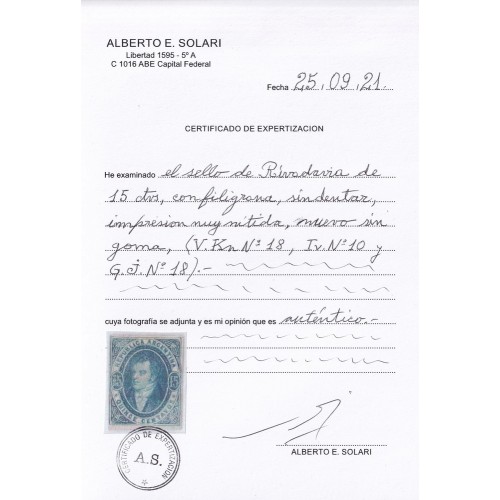 ALBERTO E. SOLARI
Libertad 1595 - 5º A
C 1016 ABE Capital Federal
Fecha 25.09.21.
CERTIFICADO DE EXPERTIZACION
He examinado el sello de Rivadavia de
15 ctvs, con filigrana, sin dentar,
impresion muy nítida, nuevo sin
goma, (V.Kn Nº 18, Iv. Nº 10 y
G.J. Nº 18).-
cuya fotografía se adjunta y es mi opinión que es auténtico.-
REPUBLICA ARGENTINA
QUINCE CENTAVOS
CERTIFICADO DE EXPERTIZACION
A.S.
ALBERTO E. SOLARI